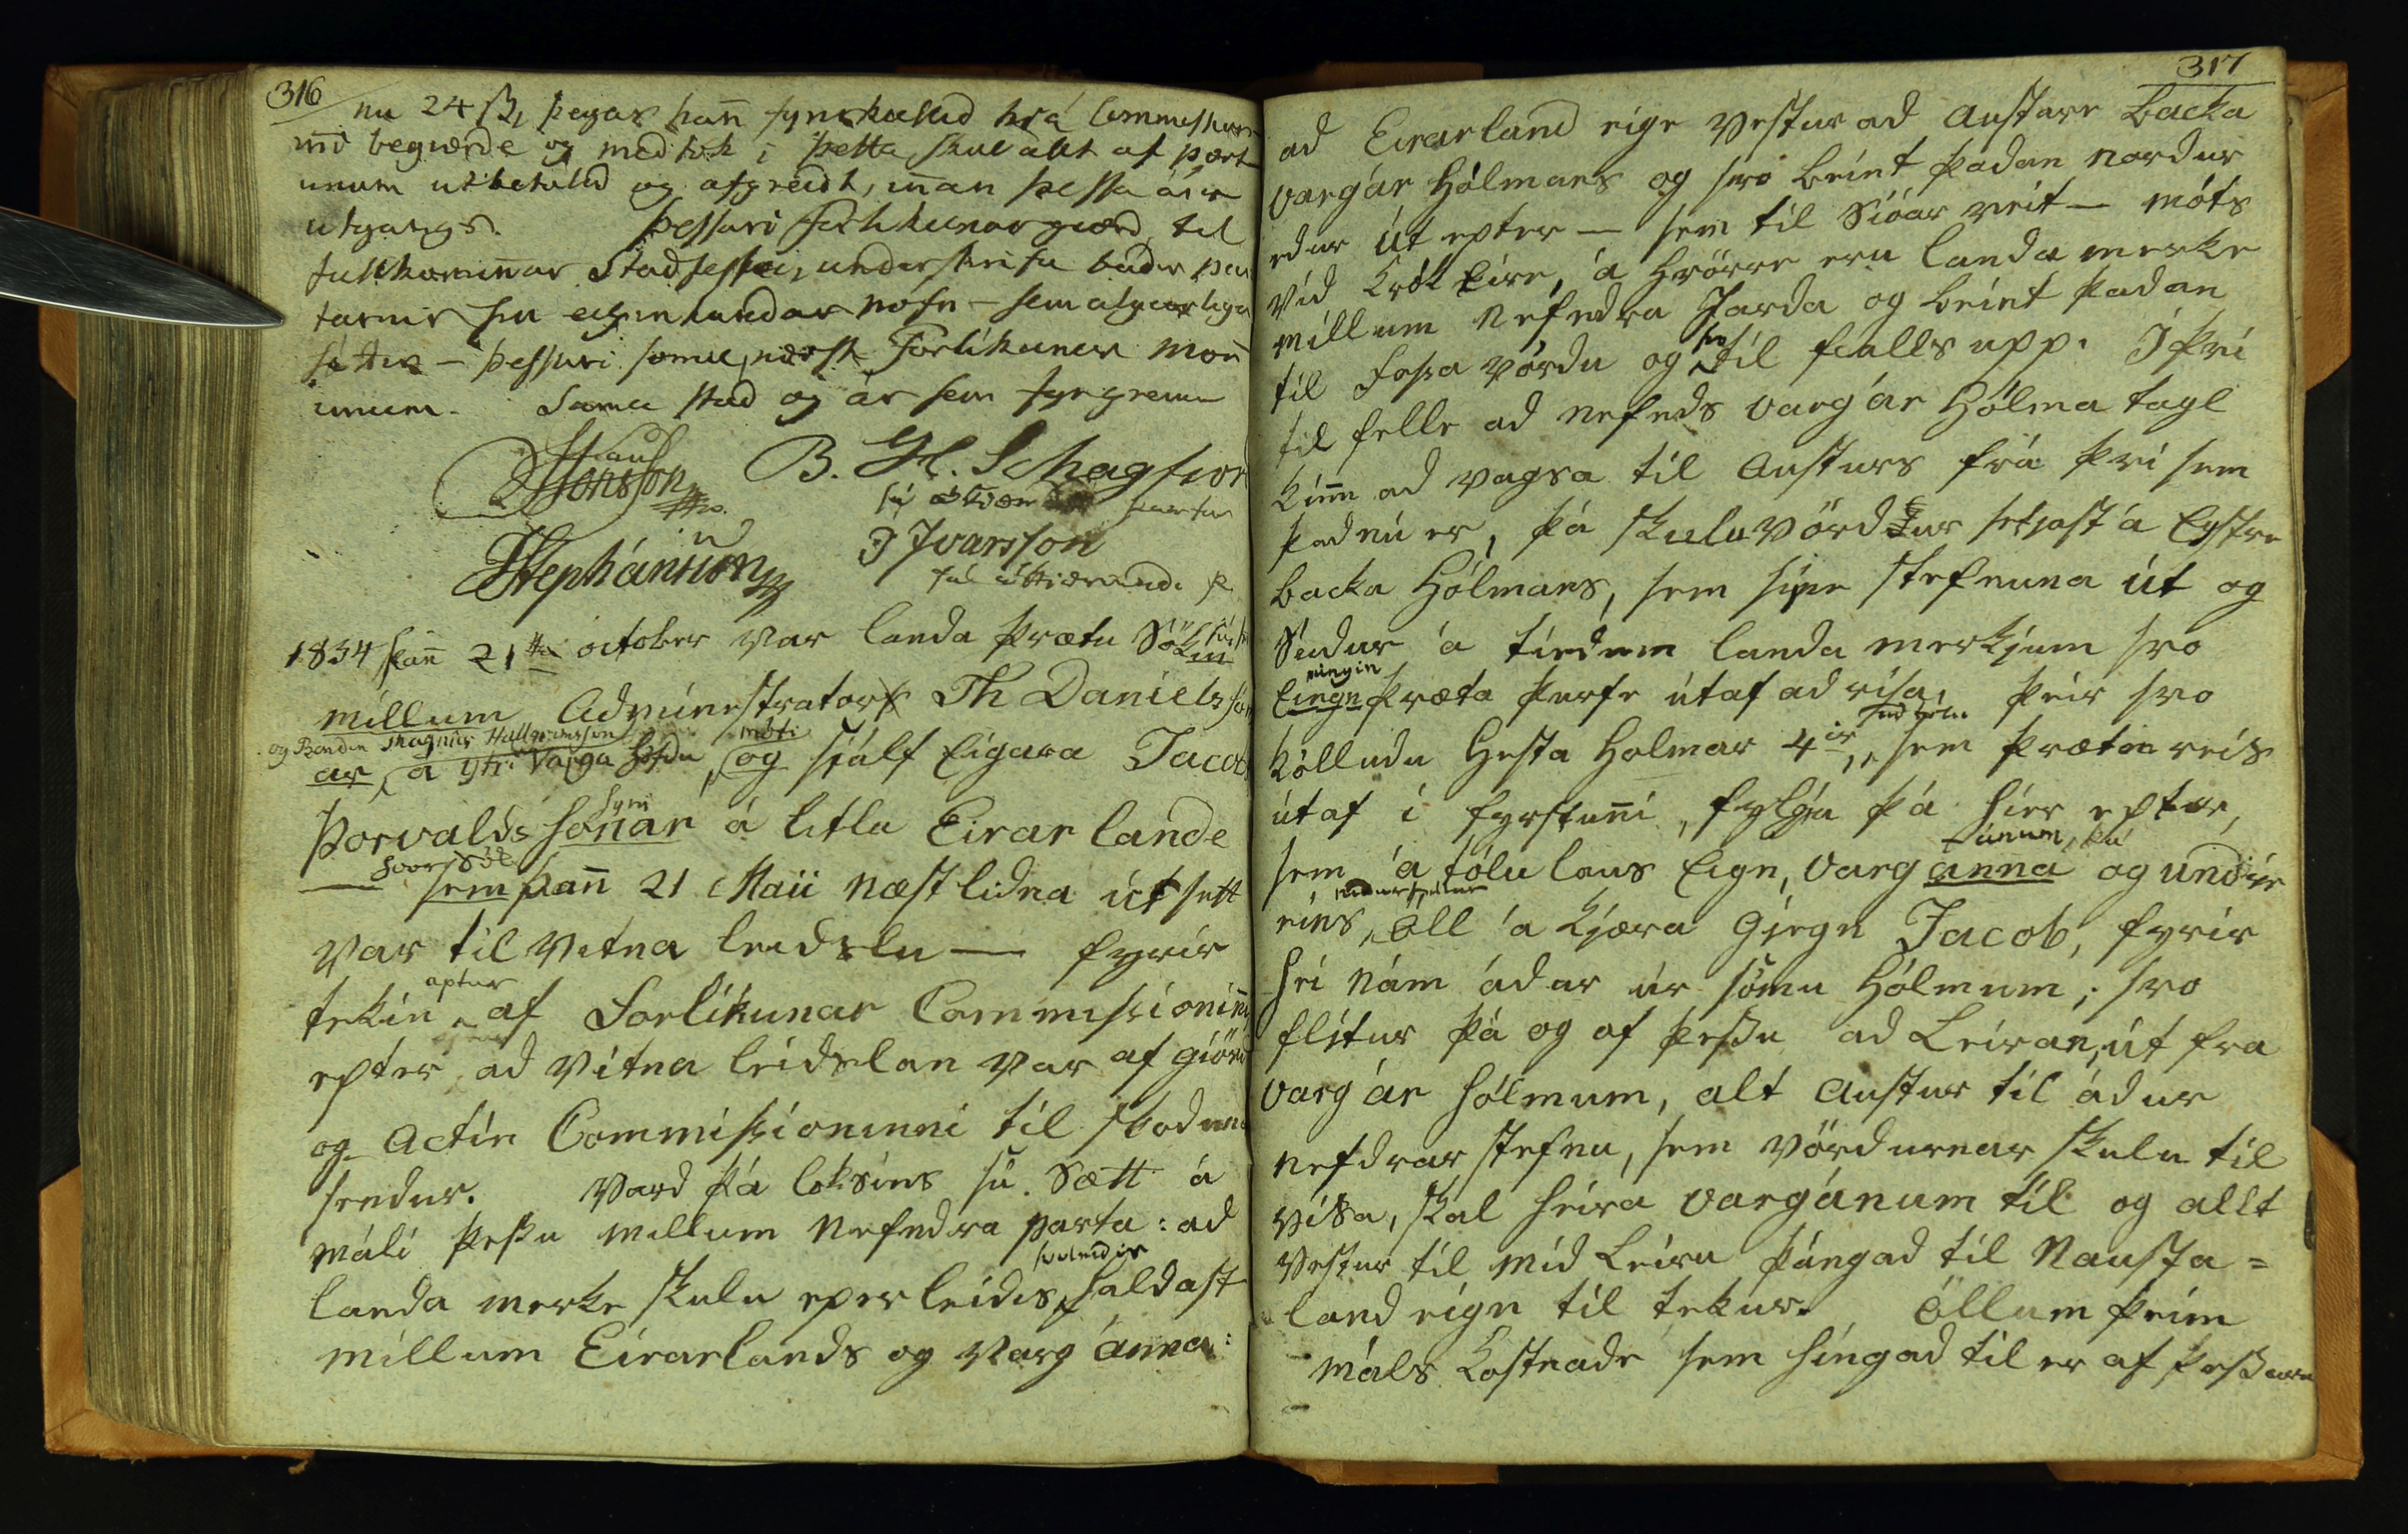 316
nu 24 ſz, þegar han̄ fyrskulld hrá Commissiun
nni begiærde og medtok; þetta skal allt af pört
unum utbetalad og afgreidt, in̄an þessa árs
utgangs. Þessari Forlikunargiørd til
fullkomin̄ar Stadfestu, underskrifa báder par
tarnir sín eiginhandar nöfn – sem algiørliga
sátter – þessari somu, næst Forlíkunar Mön̄
unum. Sama Stad og ár sem fyrgreinir
Jonsson B. H. Schagfiord
HStephánsson J Ivarsson
1834 þan̄ 21ta october var landa þrætu Sökin
millum Administrators Th Danielssonar
og Bondin Magnús Hallgrímsson
ar, á ytri Varga hófdu, og móti sjálf Eigara Jacob
Þorvalds sonar syni á litla Eirar lande
hvor Sök
sem þan̄ 21 Maii næstlidna útsett
var til vitna leidslu — fyrir
tekin aptur af Forlikunar Commissionin̄i
epter ad vitna leidslan var af giörd
og Actin Commissioninni til skodunar
sendur. Vard þá loksins sú Sætt á
máli þessu millum Nefndra parta: ad
landa merke skulu eperleidis svoleidis haldast
millum Eirarlands og Varg ánna:
317
ad Eirarland eige vestur ad Austare backa
vargár hólmans og svo beint þadan nordur
edur út epter — sem til Sióar veit — móts
vid Krók Eire, á hvörre eru landa merke
millum Nefndra Jarda og beint þadan
til Fossa vördu og svo til fialls upp. I því
til felle ad nefnds vargár hólma tagl
kin̄e ad vagsa til Austurs frá því sem
þad nú er, þá skulu vördur setjast á Eystre
backa Hólmans, sem síne stefnuna út og
Sudur á tiedum landa merkjum svo
eingin
Eingn þræta þurfe útaf ad rísa, þeir svo
kölludu Hesta hólmar 4ir, sem þrætan reis
útaf i fyrstun̄i, fylgia þá hier epter,
sem átölu laus Eign, Varg ánna ánum, þá og undir
eins, öll ákjæra gjegn Jacob, fyrir
hei nám ádar úr sömu hólmum; svo
flítur þá og af þessu ad Leiran, út fra
vargár hólmum, alt austur til ádur
nefdrar stefnu, sem vördurnar skulu til
vísa, skal heira Vargánum til og allt
vestur til mid Leiru þángad til Nausta=
land eign til tekur. Öllum þeim
máls kostnade sem hingad til er af þessare